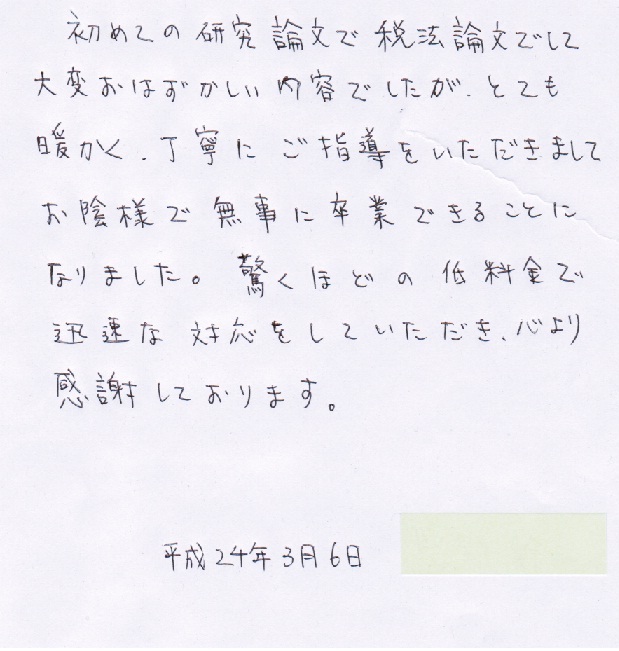 初めての研究論文で税法論文でして
大変おはずかしい内容でしたが、とても
暖かく、丁寧にご指導をいただきまして
お陰様で無事に卒業できることに
なりました。驚くほどの低料金で
迅速な対応をしていただき、心より
感謝しております。
平成24年3月6日